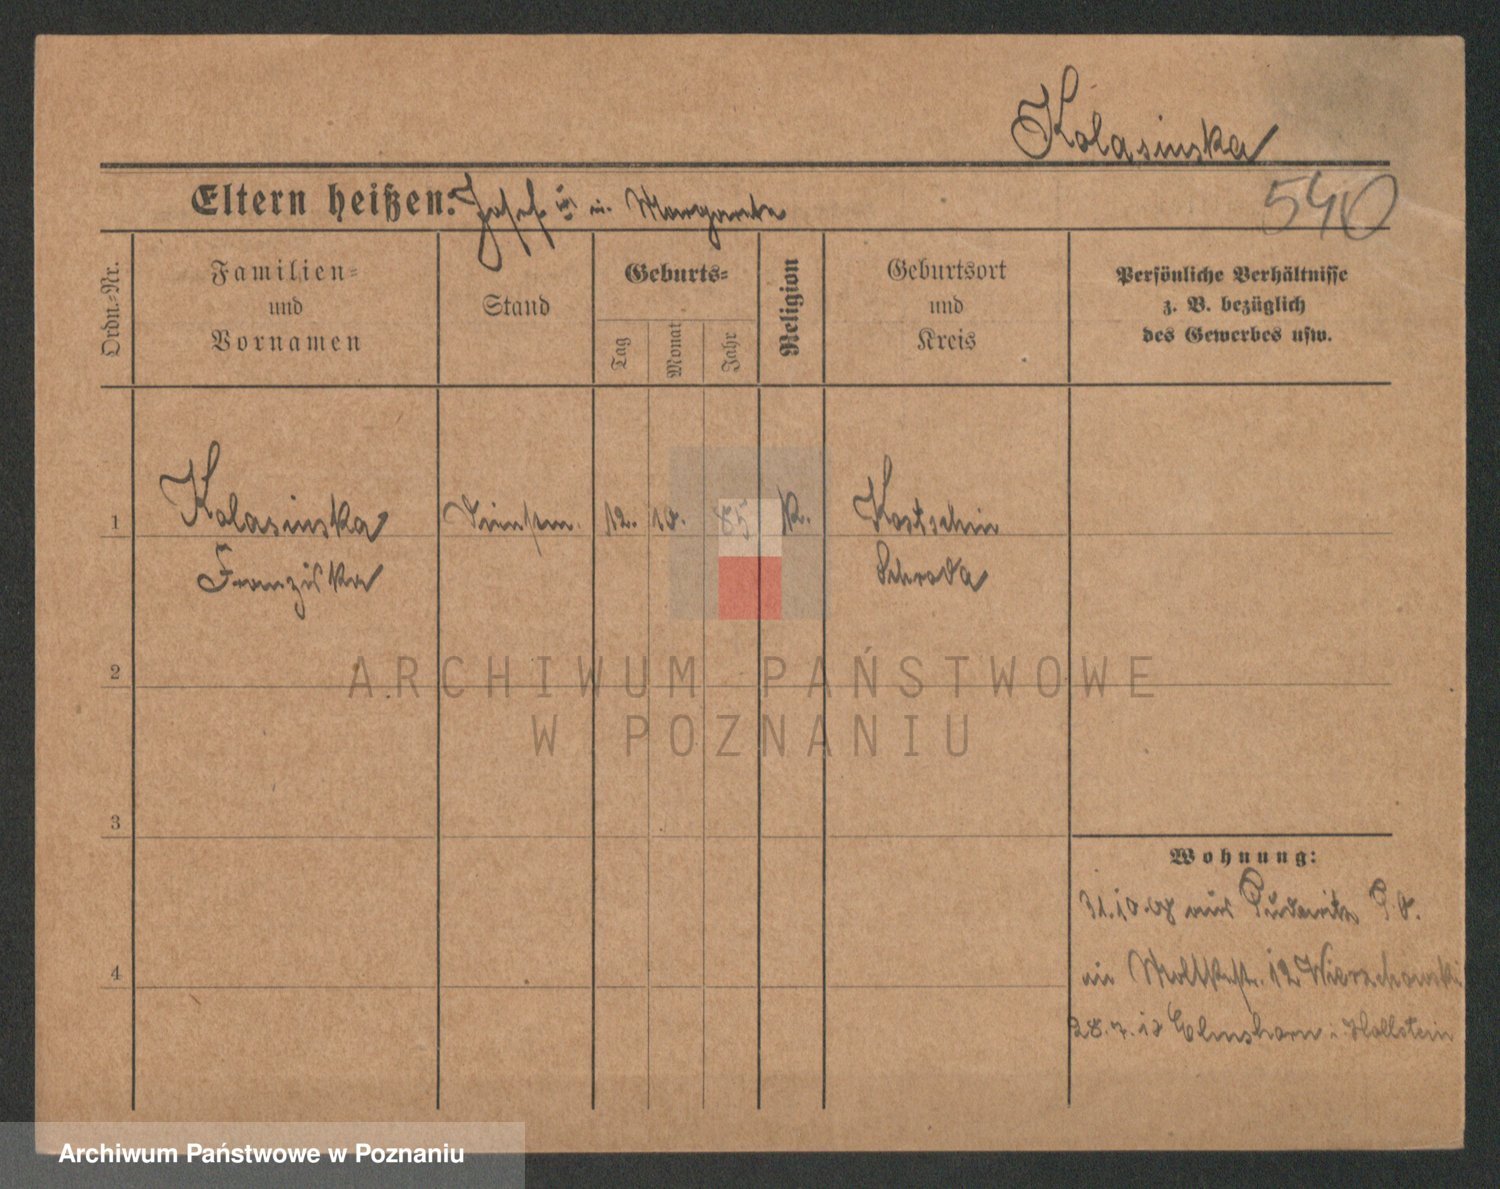 Kolasinska
540
Eltern heißen: Josef u. Margarete
Ordn.-Nr.
Familien-
und
Vornamen
Stand
Geburts-
Tag
Monat
Jahr
Religion
Geburtsort
und
Kreis
Persönliche Verhältnisse
z. B. bezüglich
des Gewerbes usw.
1
Kolasinska 12. 10. 85 K. Kostschin
Franziska Schroda
2
ARCHIWUM PAŃSTWOWE
W POZNANIU
3
Wohnung:
31.10.08 aus Pudewitz
in Moltkestr. 12 Wierzchowski
4
28.7.12 Elmshorn i. Hollstein
Archiwum Państwowe w Poznaniu